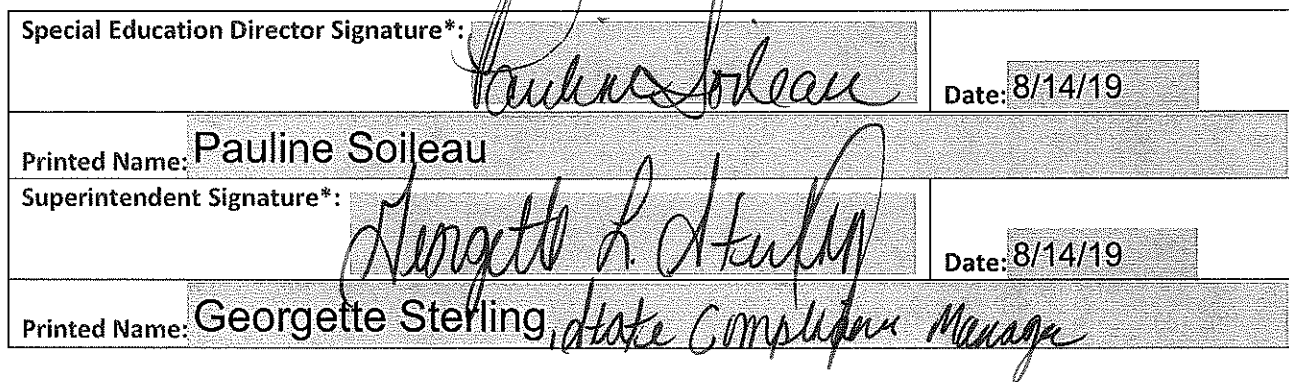 Special Education Director Signature*: Pauline Soileau
Date: 8/14/19
Printed Name: Pauline Soileau
Superintendent Signature*: Georgette L. Sterling
Date: 8/14/19
Printed Name: Georgette Sterling, State Compliance Manager